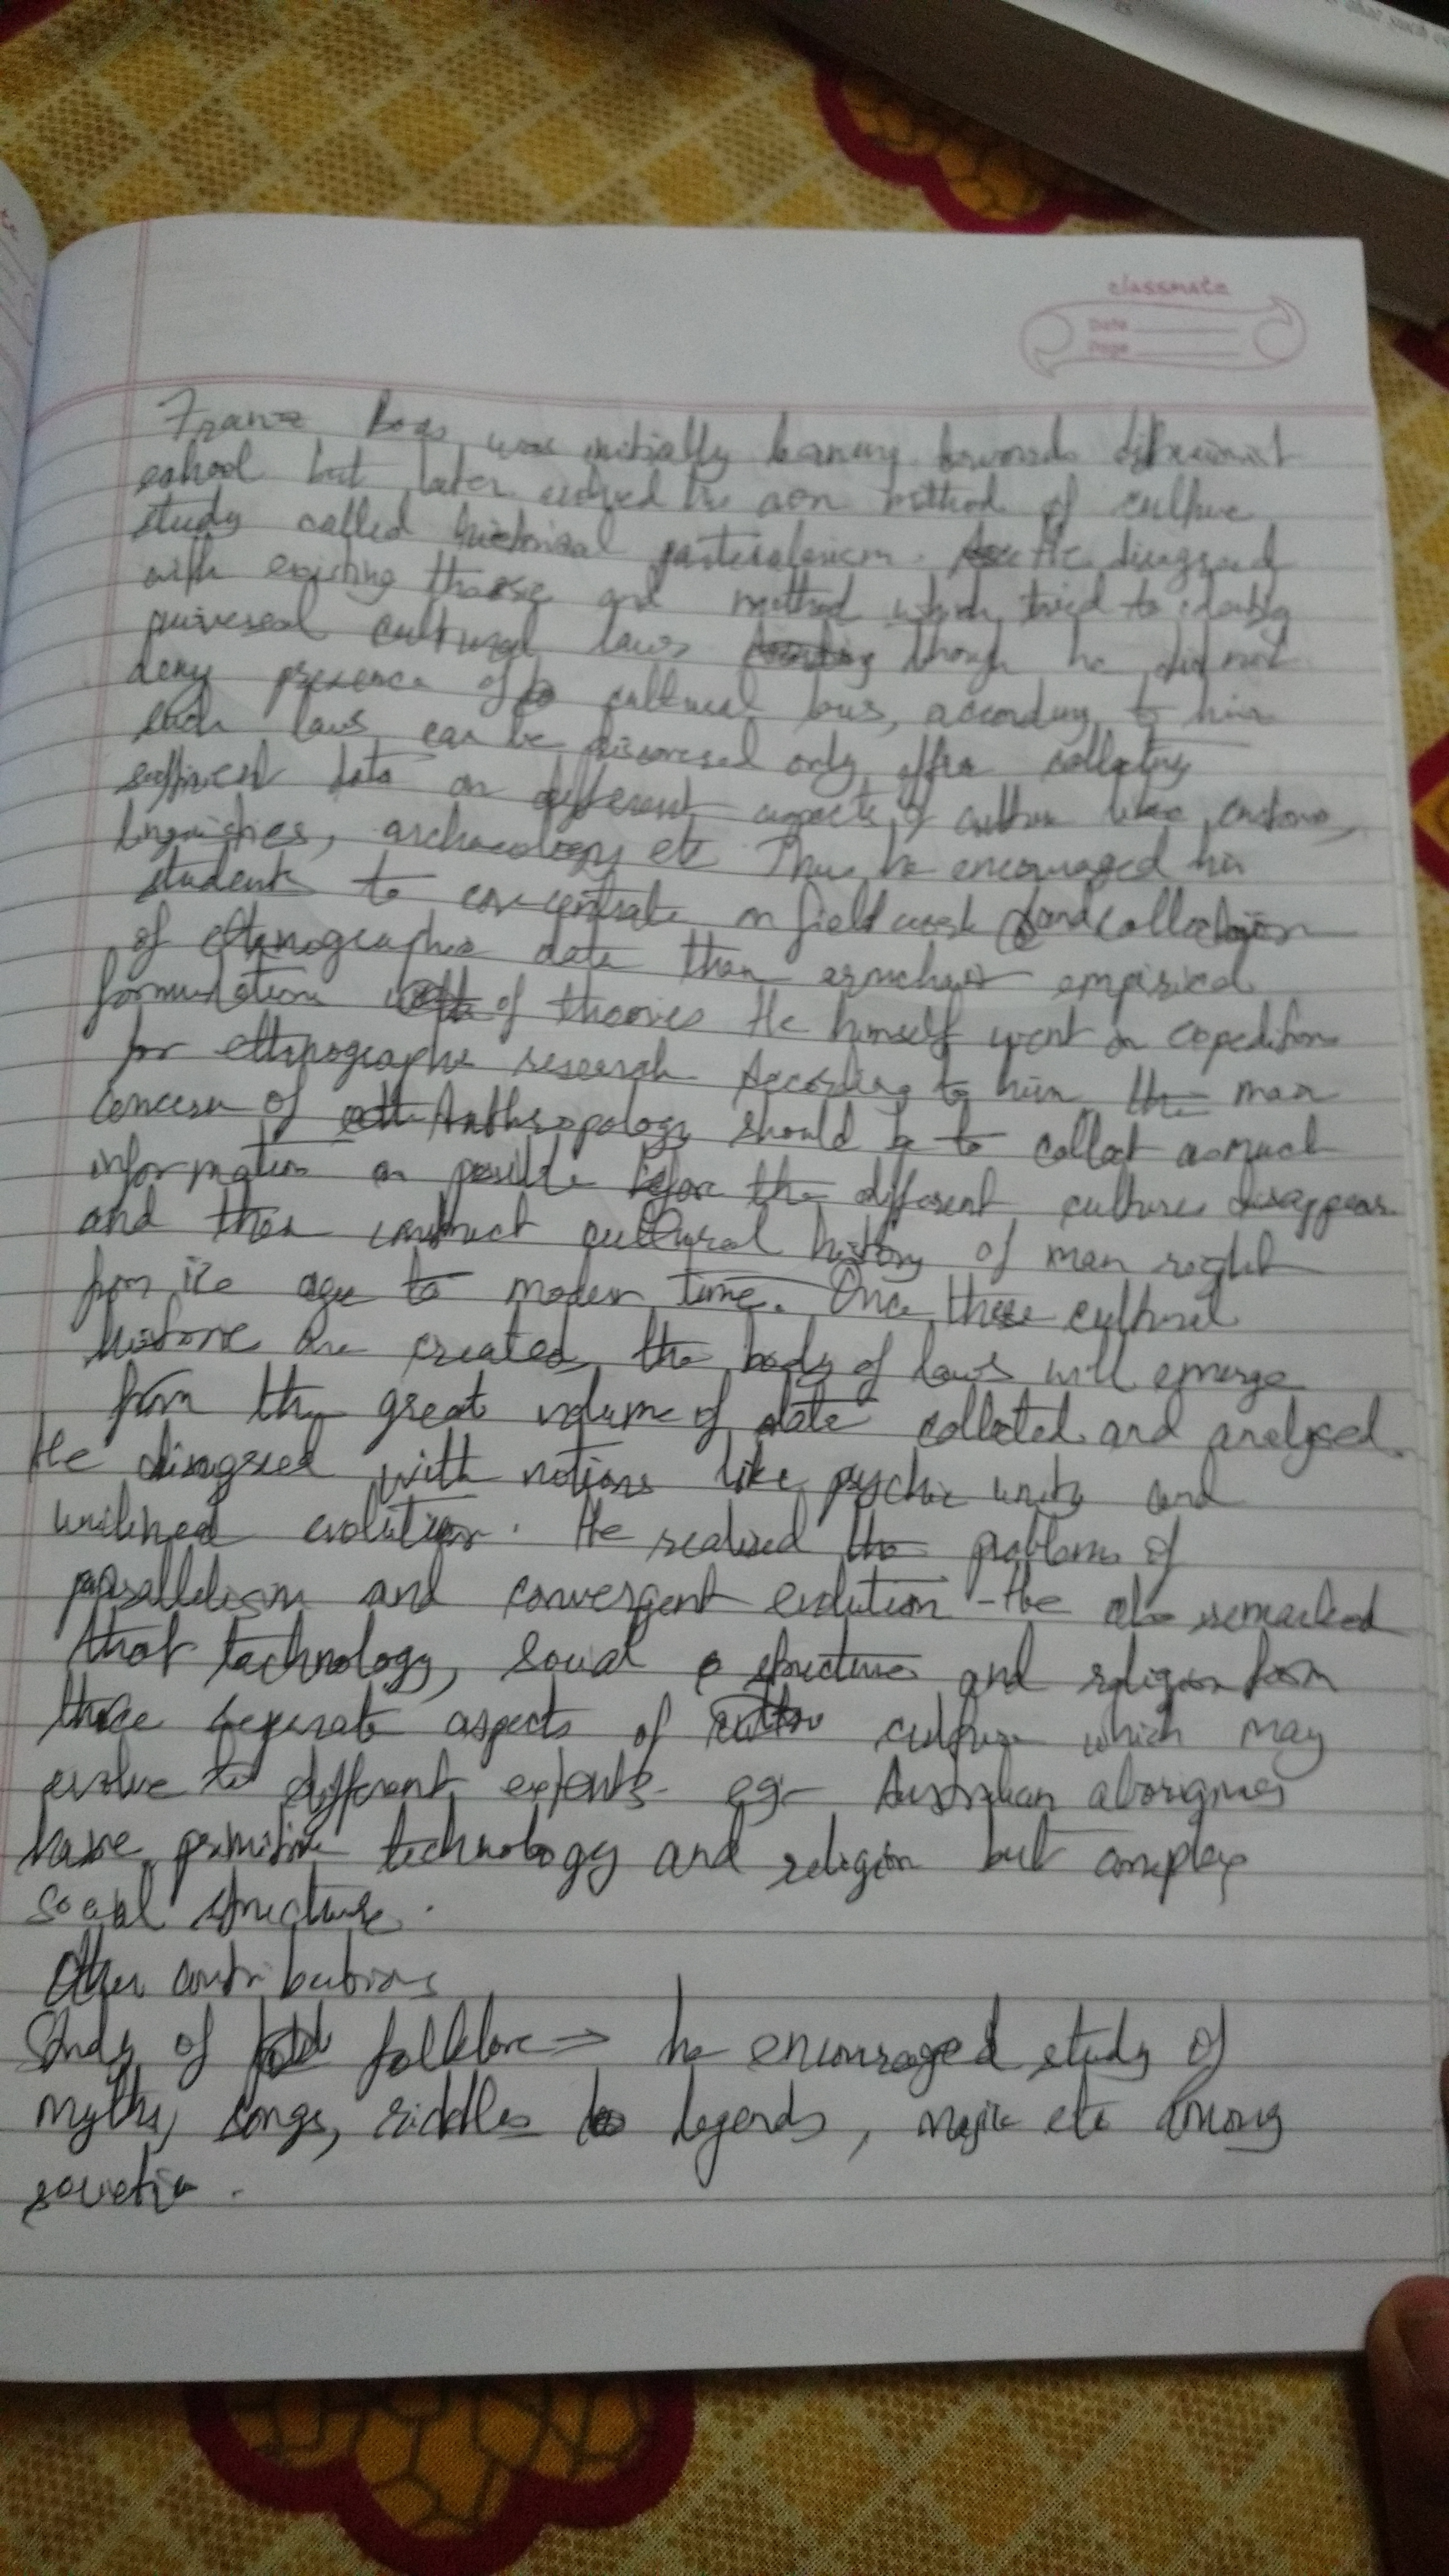 classmate
Date
Page
Franz Boas was initially leaning towards diffusionist
school but later evolved his own method of culture
study called historical particularism. He disagreed
with existing and method which tried to identify
universal cultural laws though he did not
deny presence of cultural laws, according to him
such laws can be discovered only after collecting
sufficient data on different aspects of culture like customs,
linguistics, archaeology etc. Thus he encouraged his
students to concentrate on field work and collection
of ethnographic data than armchair empirical
formulation of theories He himself went on expeditions
for ethnographic research. According to him the main
concern of Anthropology should be to collect as much
information as possible before the different cultures disappear
and then construct cultural history of man right
from ice age to modern time. Once these cultural
are created, the body of laws will emerge
from the great volume of data collected and analysed.
He disagreed with notions like psychic unity and
unilineal evolution. He realised the problems of
parallelism and convergent evolution - He also remarked
that technology, social structure and religion form
three seperate aspects of culture which may
evolve to different extents. eg:- Australian aborigines
have primitive technology and religion but complex
social structure.
Other contributions
Study of folklore ⇒ he encouraged study of
myths, songs, riddles legends, magic etc among